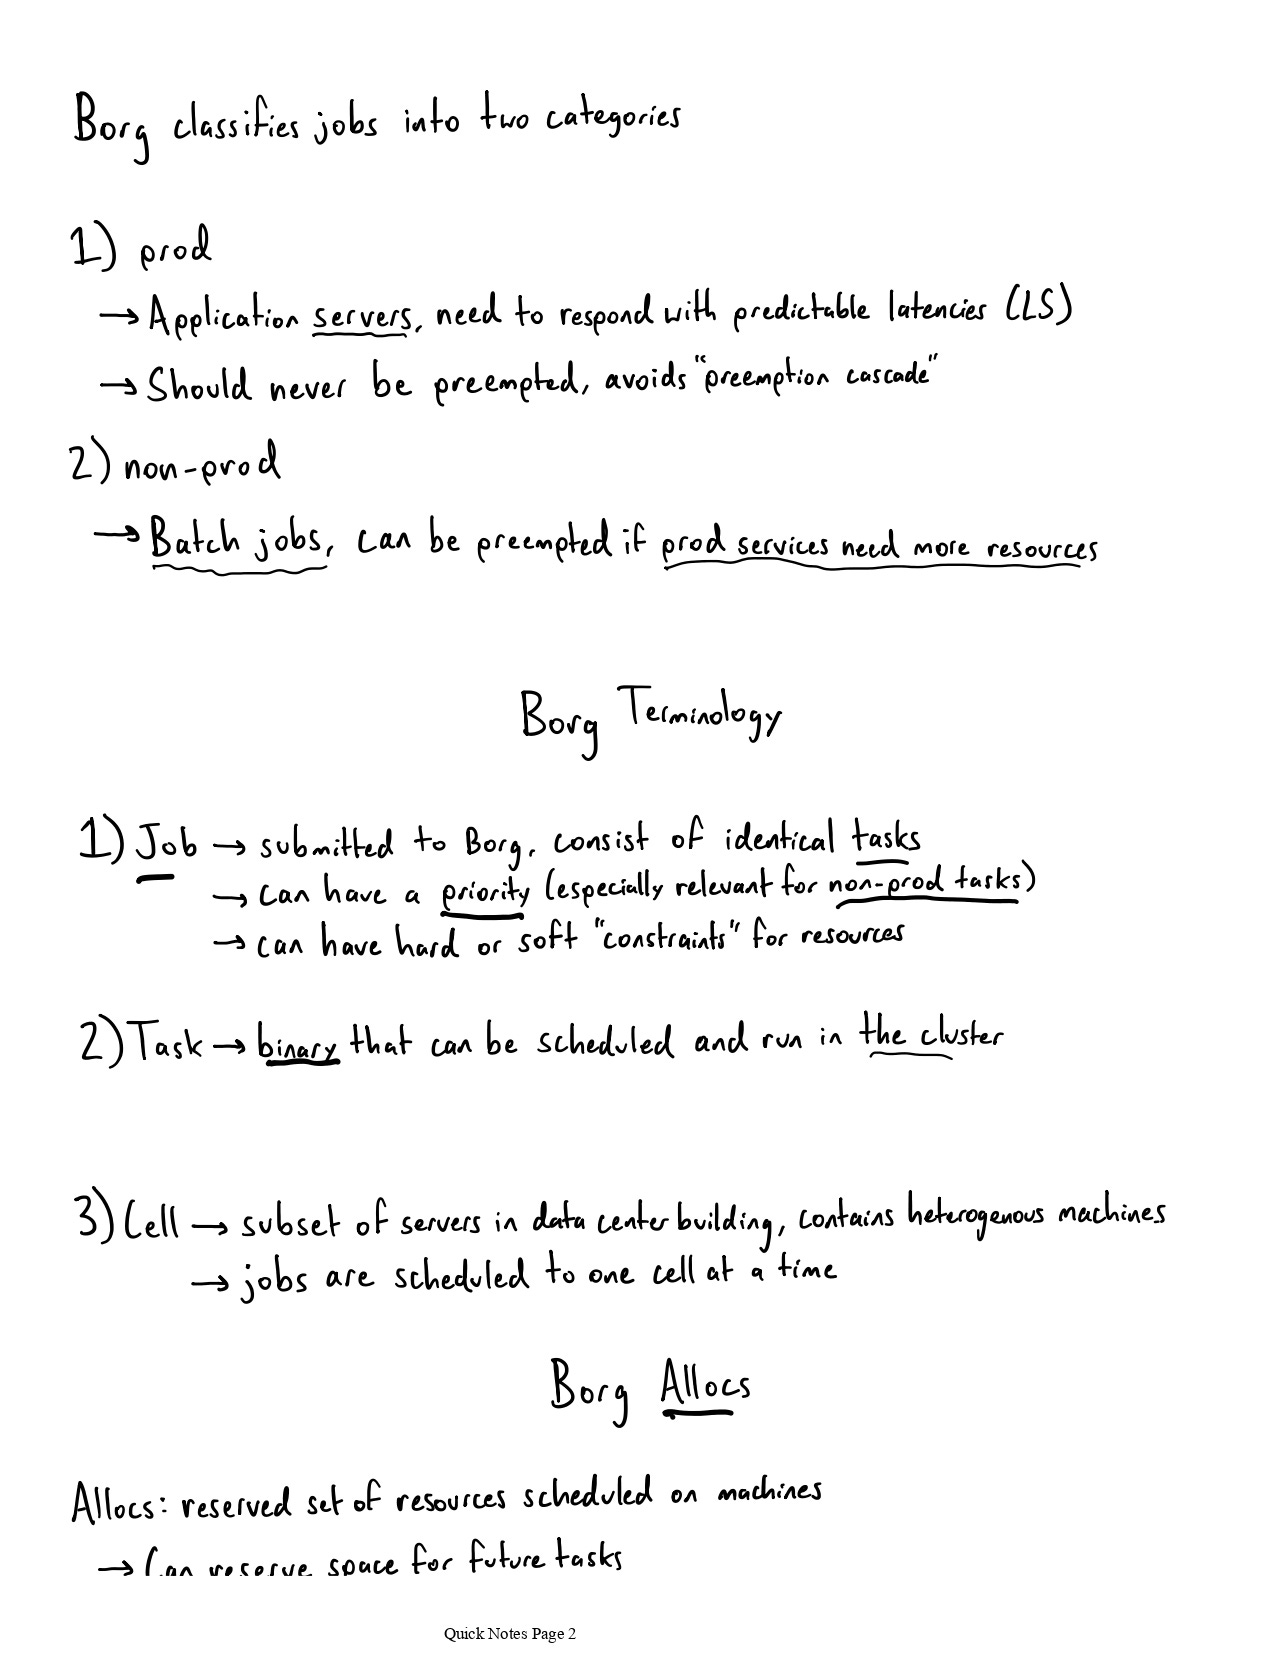 Borg classifies jobs into two categories
1) prod
→ Application servers, need to respond with predictable latencies (LS)
→ Should never be preempted, avoids "preemption cascade"
2) non-prod
→ Batch jobs, can be preempted if prod services need more resources
Borg Terminology
1) Job → submitted to Borg, consist of identical tasks
→ can have a priority (especially relevant for non-prod tasks)
→ can have hard or soft "constraints" for resources
2) Task → binary that can be scheduled and run in the cluster
3) Cell → subset of servers in data center building, contains heterogenous machines
→ jobs are scheduled to one cell at a time
Borg Allocs
Allocs: reserved set of resources scheduled on machines
→ Can reserve space for future tasks
Quick Notes Page 2